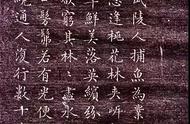 武陵人捕魚為業
忽逢桃花林夾岸
草鮮美落英繽紛
欲窮其林盡水
髣髴若有光便
通人復行數十